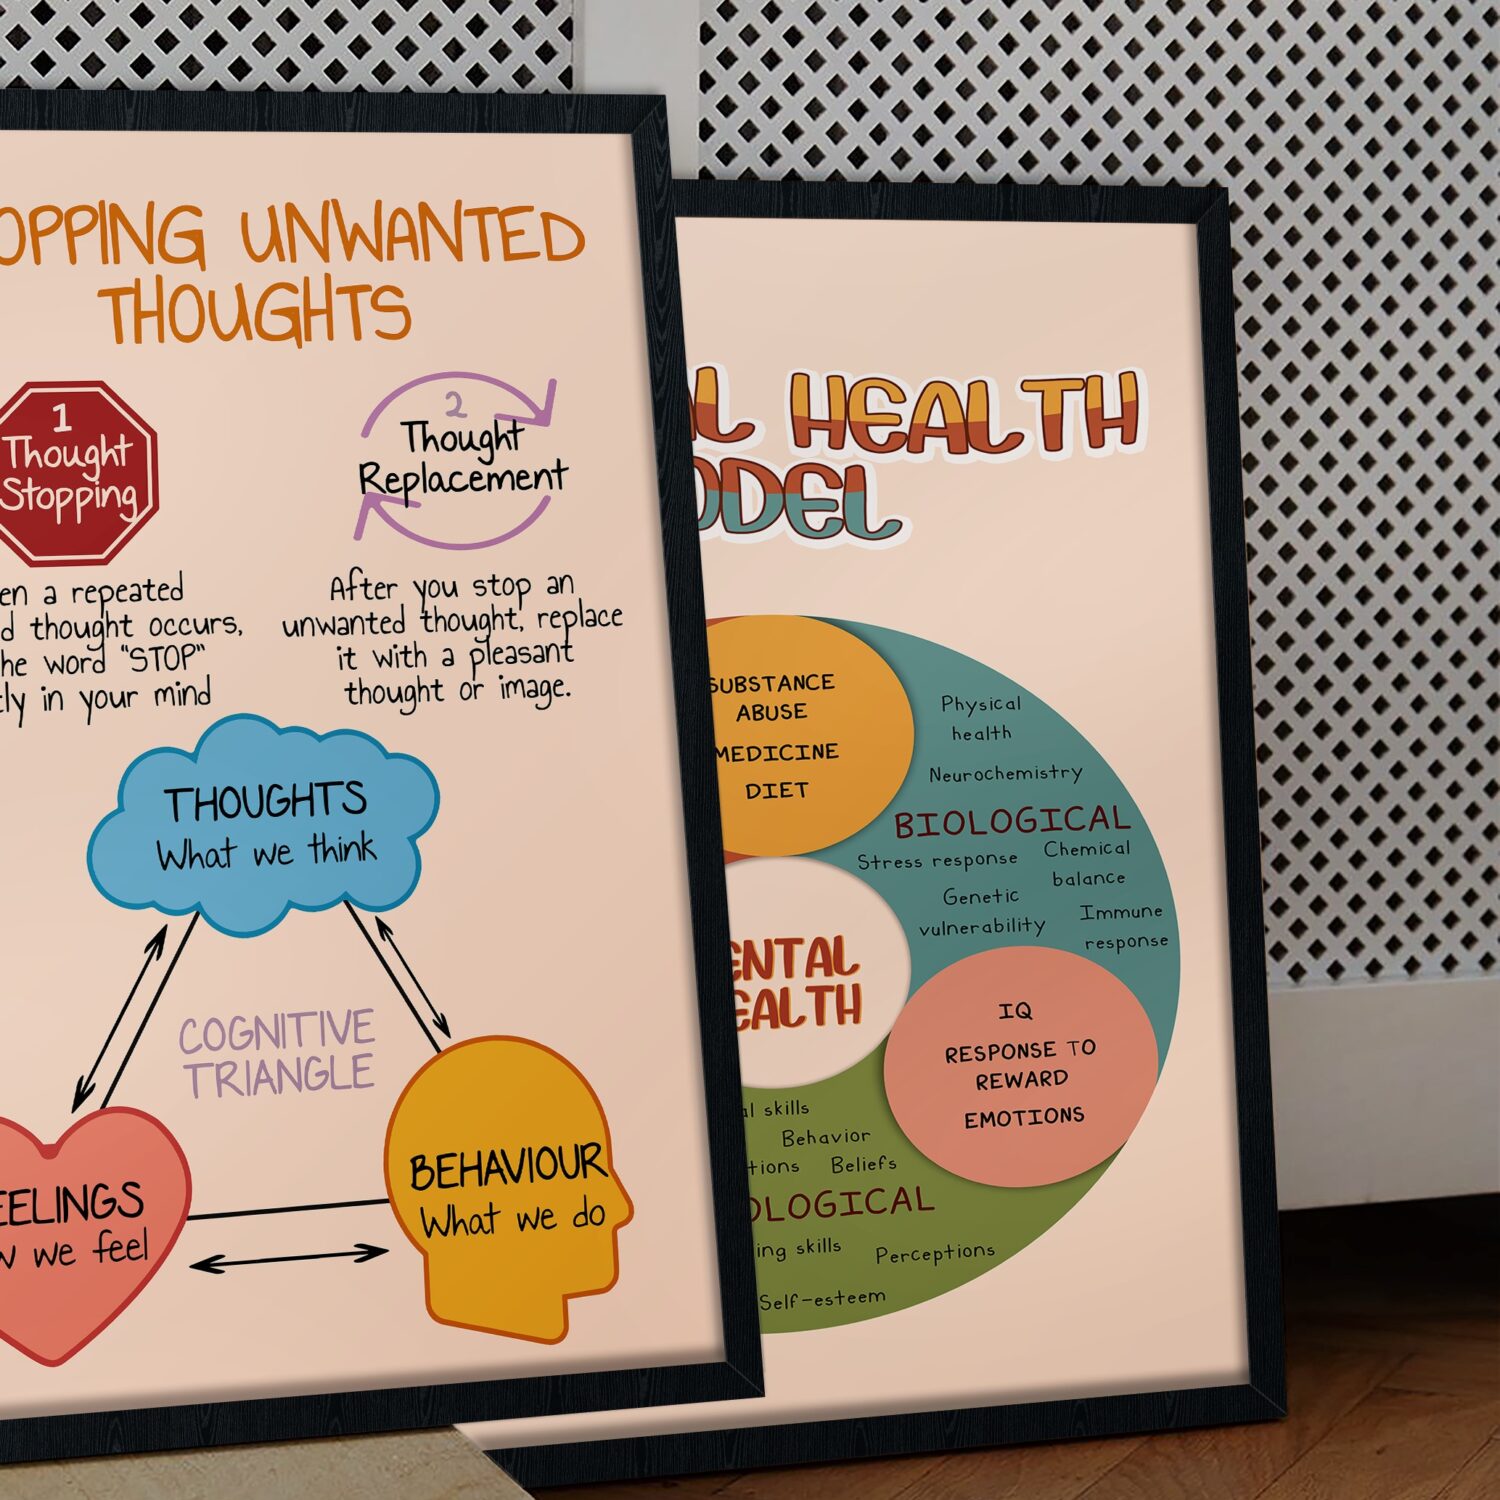 OPPING UNWANTED
THOUGHTS
1
Thought
Stopping
2
Thought
Replacement
en a repeated
d thought occurs,
he word "STOP"
ly in your mind
After you stop an
unwanted thought, replace
it with a pleasant
thought or image.
THOUGHTS
What we think
COGNITIVE
TRIANGLE
EELINGS
w we feel
BEHAVIOUR
What we do
L HEALTH
ODEL
SUBSTANCE
ABUSE
MEDICINE
DIET
Physical
health
Neurochemistry
BIOLOGICAL
Stress response
Chemical
balance
Genetic
vulnerability
Immune
response
ENTAL
EALTH
IQ
RESPONSE TO
REWARD
EMOTIONS
al skills
Behavior
tions Beliefs
OLOGICAL
ing skills
Perceptions
Self-esteem